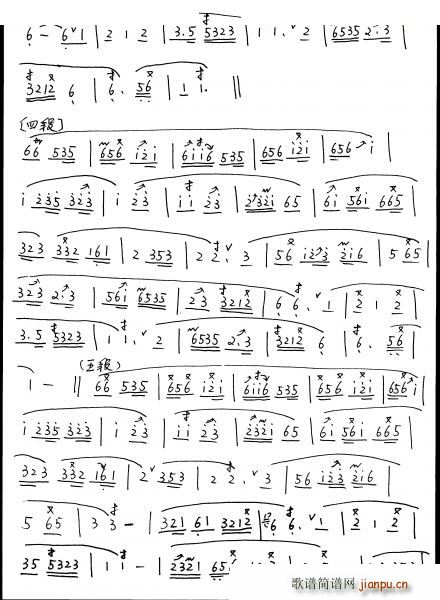 6 – 6 1 | 2 1 2 | 3.5 5323 | 1 1. 2 | 6535 2.3 |
3212 6 | 6. 56 | 1 1. ||
[四叚]
66 535 | 656 i2i | 6ii6 535 | 656 i2i | 656 i |
i 235 323 | i 23 | i i 23 | 2321 65 | 6i 56i 665 |
323 332 161 | 2 353 | 2 2. 3 | 56 i23 2i6 | 5 65 |
323 2.3 | 56i 6535 | 23 3212 | 6 6. 1 | 2 1 2 |
3.5 5323 | 1 1. 2 | 6535 2.3 | 3212 6 | 6. 56 |
1 – || (五叚) 66 535 | 656 i2i | 6ii6 535 | 656 i2i | 656 i |
i 235 323 | i 23 | i i 23 | 2321 65 | 6i 56i 665 |
323 332 161 | 2 353 | 2 2. 3 | 56 i23 2i6 |
5 65 | 3 3 – | 321 61 3212 | 6 6. 1 | 2 1 2 |
35 5323 | 1 1 – | 2321
歌谱简谱网 jianpu.cn